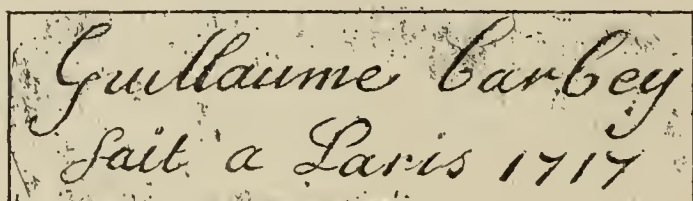 Guillaume barbey
fait a Paris 1717